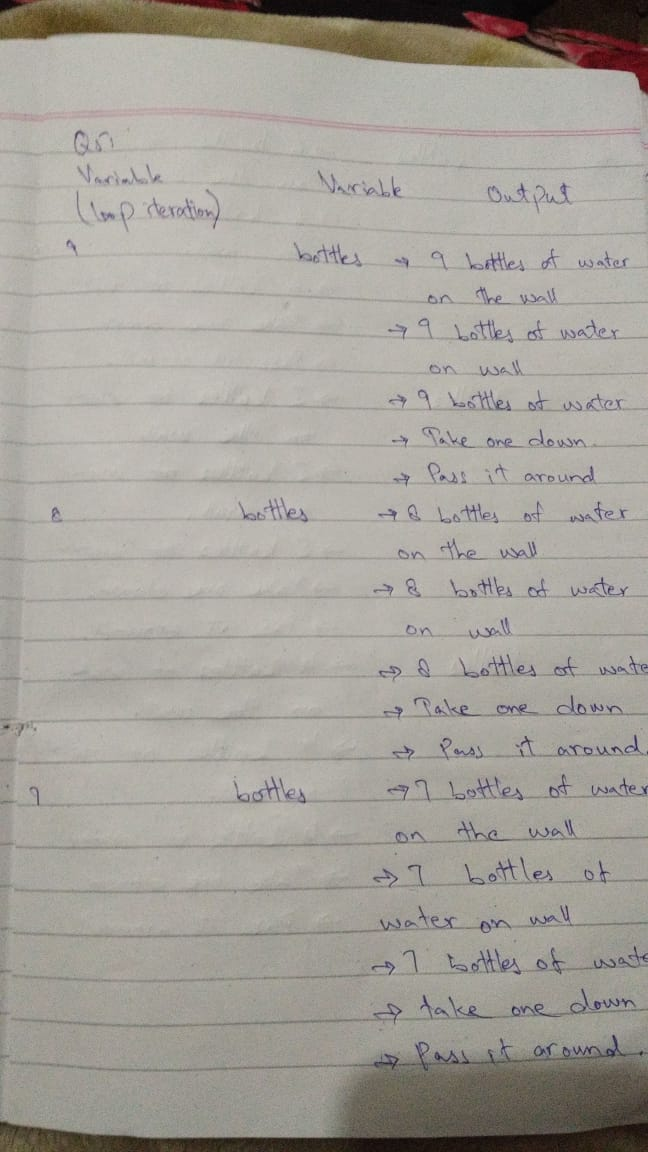 Q5)
Variable Variable Output
(loop iteration)
9 bottles → 9 bottles of water
on the wall
→ 9 bottles of water
on wall
→ 9 bottles of water
→ Take one down.
→ Pass it around
8 bottles → 8 bottles of water
on the wall
→ 8 bottles of water
on wall
→ 8 bottles of wate
→ Take one down
→ Pass it around.
7 bottles → 7 bottles of water
on the wall
→ 7 bottles of
water on wall
→ 7 bottles of wate
→ take one down
→ Pass it around.